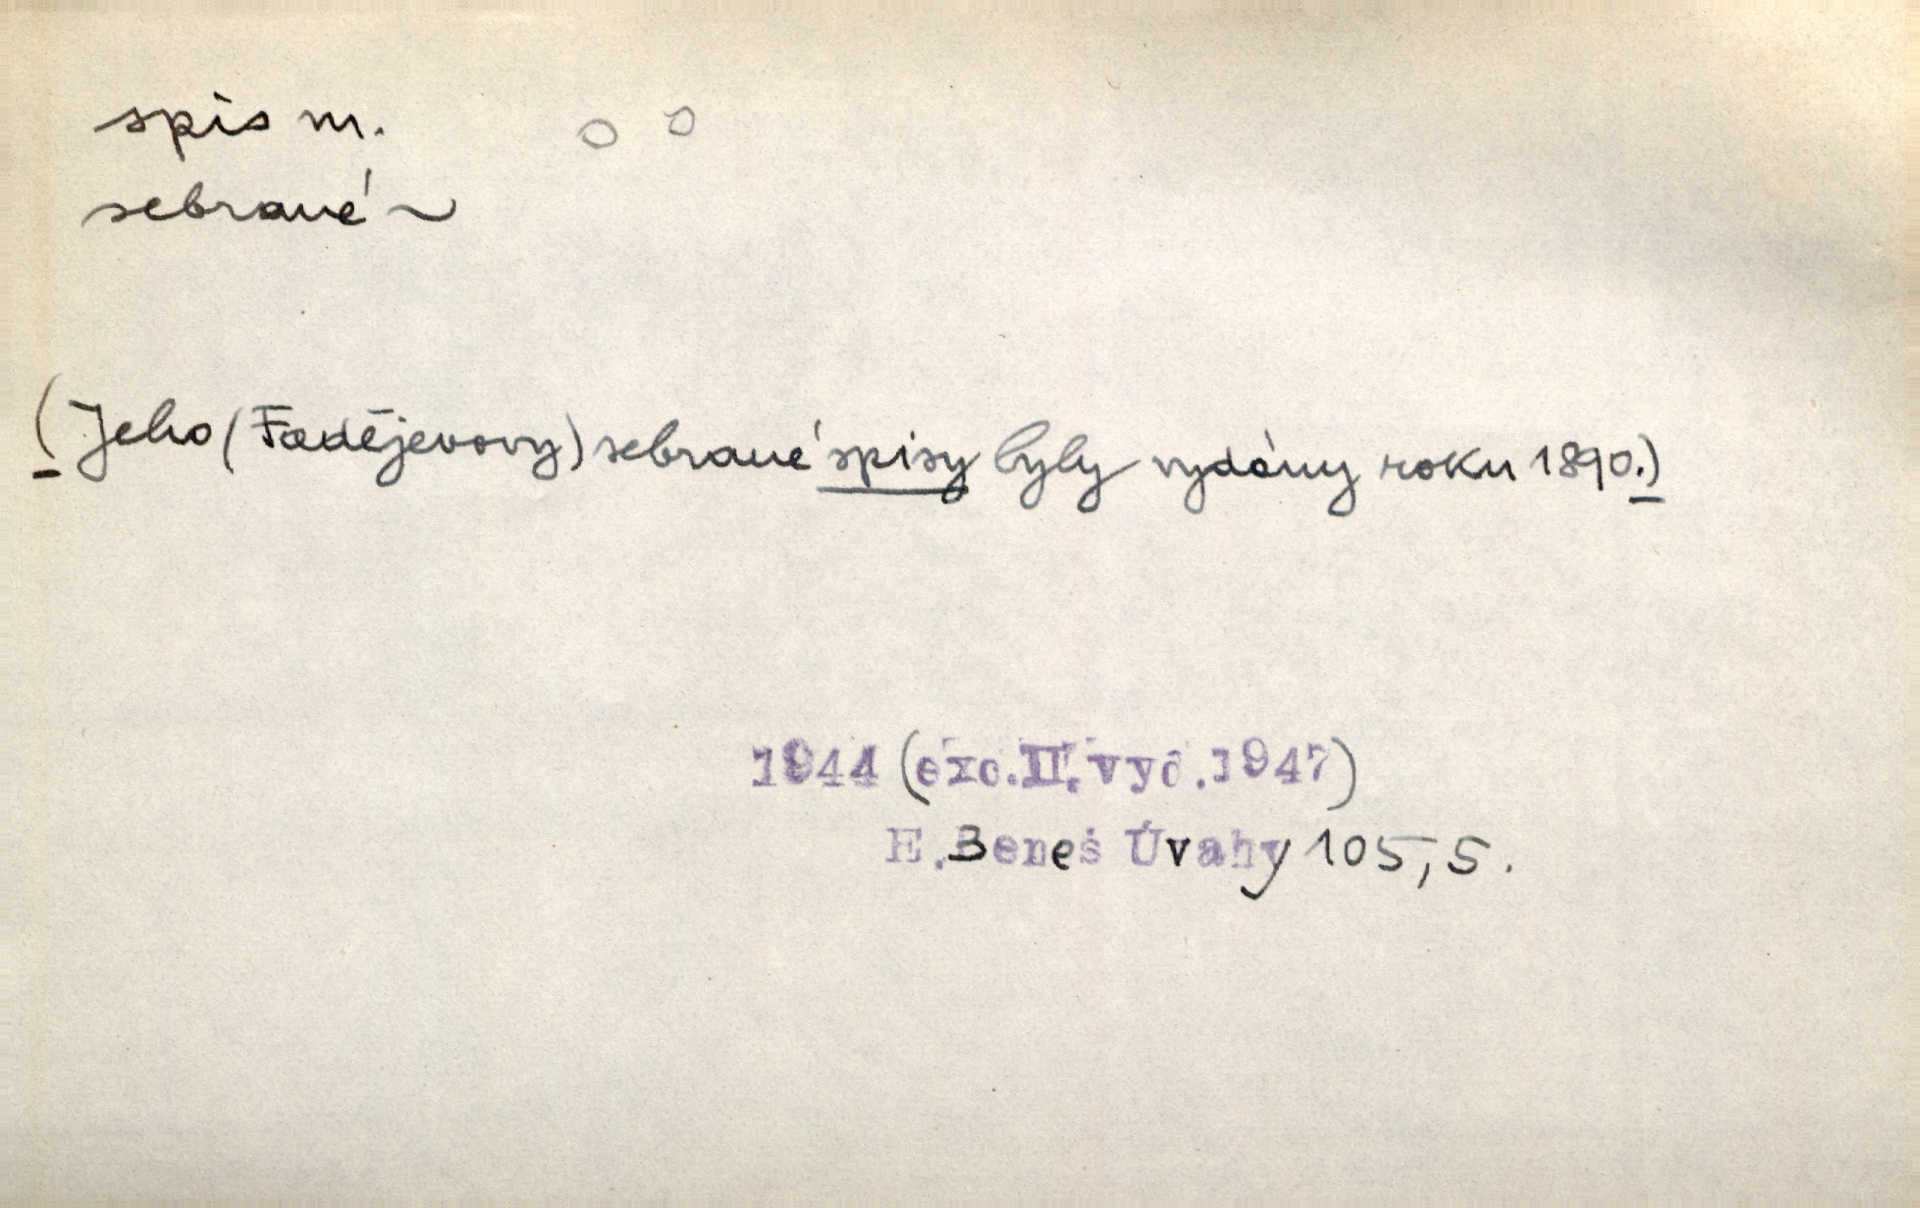 spis m. o o
sebrané ~
(Jeho (Fadějevovy) sebrané spisy byly vydány roku 1890.)
1944 (exc. II. vyd. 1947)
E. Beneš Úvahy 105,5.